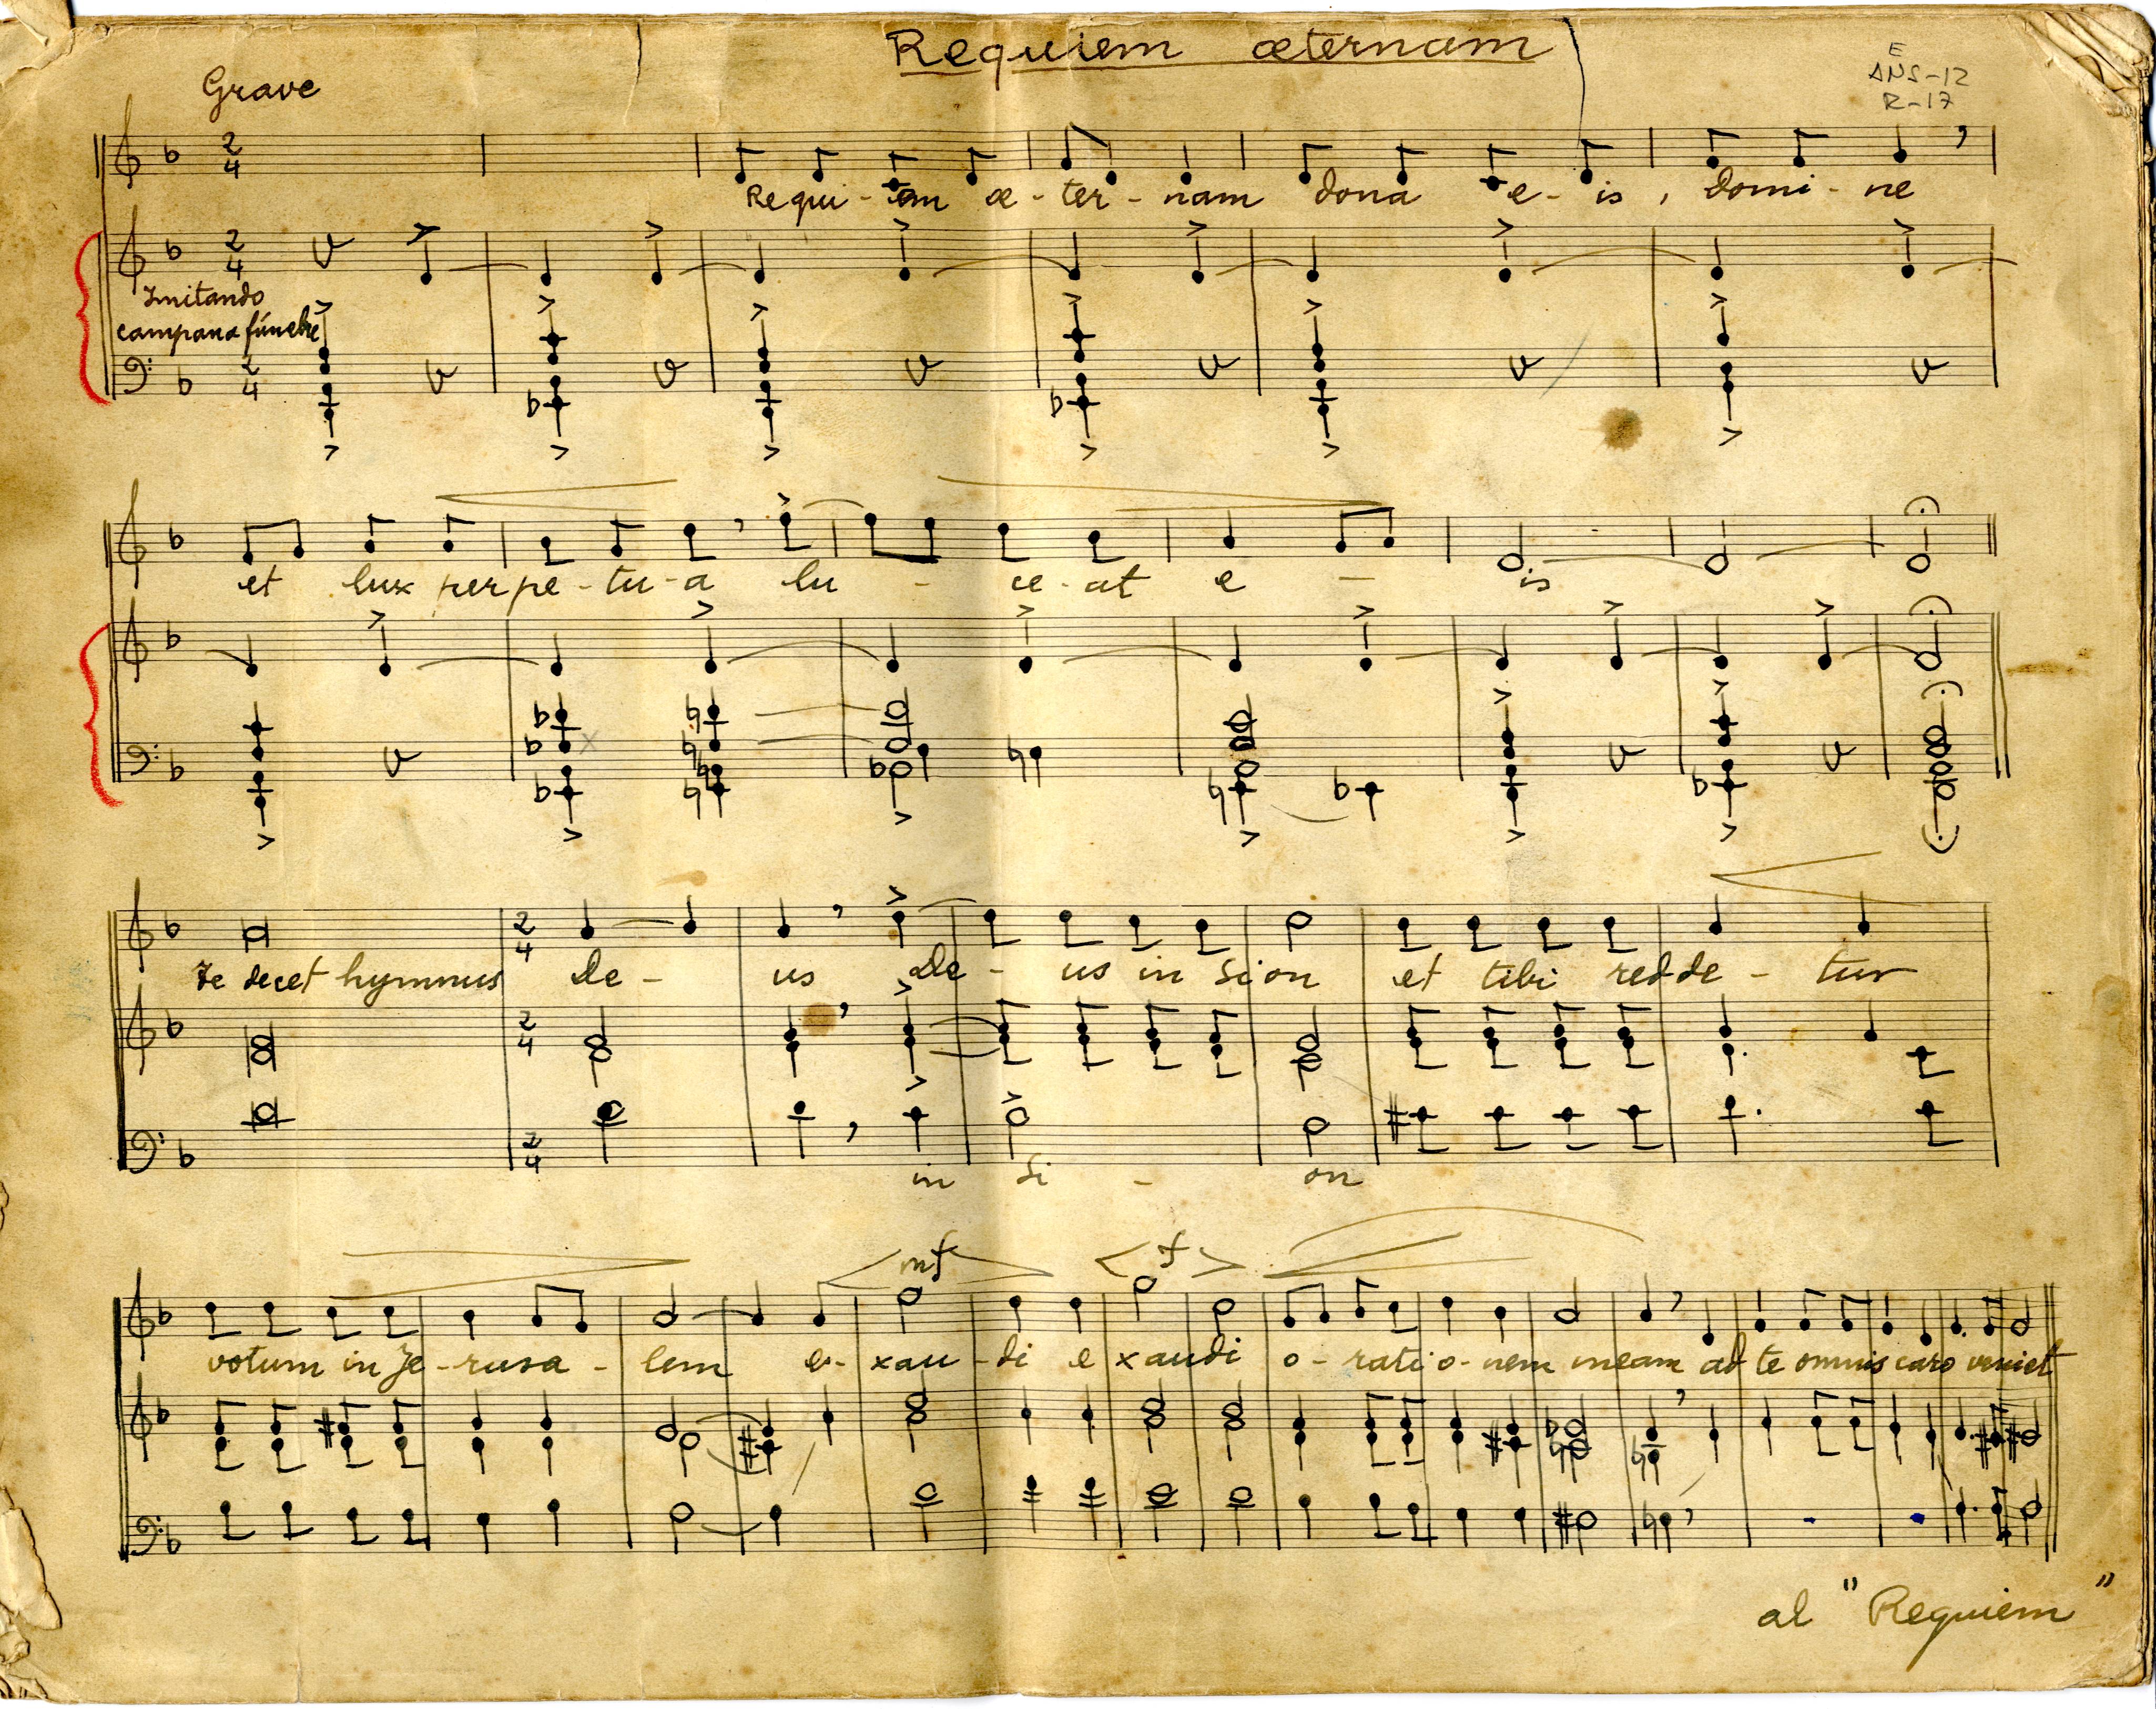 Requiem æternam
E
ANS-12
R-17
Grave
2 4
Requi - em æ - ter - nam dona e - is, domi - ne
2 4
Imitando
campana fúnebre
2 4
et lux perpe - tu - a lu - ce - at e - is
Te decet hymnus De - us De - us in Sion et tibi redde - tur
2 4
2 4
2 4
in Si - on
mf f
votum in Je - rusa - lem e - xau - di exaudi o - ratio - nem meam ad te omnis caro veniet
al "Requiem"